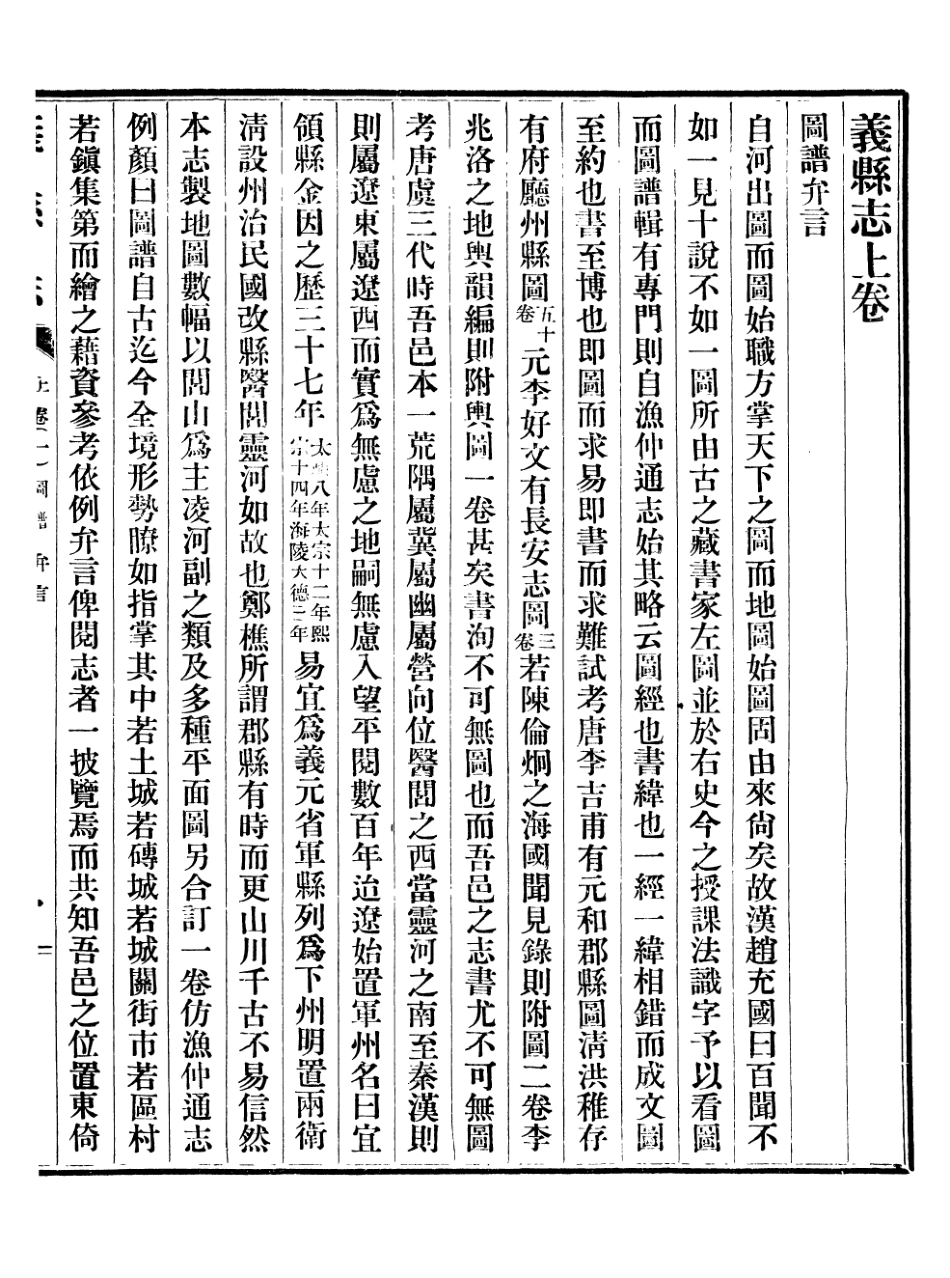 義縣志上卷
圖譜弁言
自河出圖而圖始職方掌天下之圖而地圖始圖固由來尙矣故漢趙充國曰百聞不
如一見十說不如一圖所由古之藏書家左圖並於右史今之授課法識字予以看圖
而圖譜輯有專門則自漁仲通志始其略云圖經也書緯也一經一緯相錯而成文圖
至約也書至博也即圖而求易即書而求難試考唐李吉甫有元和郡縣圖淸洪稚存
有府廳州縣圖五十卷元李好文有長安志圖三卷若陳倫炯之海國聞見錄則附圖二卷李
兆洛之地輿韻編則附輿圖一卷甚矣書洵不可無圖也而吾邑之志書尤不可無圖
考唐虞三代時吾邑本一荒隅屬冀屬幽屬營向位醫閭之西當靈河之南至秦漢則
則屬遼東屬遼西而實爲無慮之地嗣無慮入望平閱數百年迨遼始置軍州名曰宜
領縣金因之歷三十七年太八年太宗十二年熙宗十四年海陵天德三年易宜爲義元省軍縣列爲下州明置兩衛
淸設州治民國改縣醫閭靈河如故也鄭樵所謂郡縣有時而更山川千古不易信然
本志製地圖數幅以閭山爲主凌河副之類及多種平面圖另合訂一卷仿漁仲通志
例顏曰圖譜自古迄今全境形勢瞭如指掌其中若土城若磚城若城關街市若區村
若鎭集第而繪之藉資參考依例弁言俾閱志者一披覽焉而共知吾邑之位置東倚
上卷 圖譜 弁言